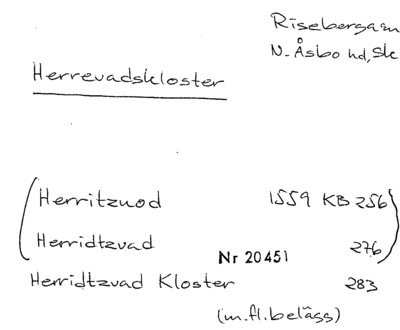 Riseberga sn
N. Åsbo hd, Sk
Herrevadskloster
(Herritzuod 1559 KB 256)
(Herridtzuad 276)
Nr 20451
Herridtzuad Kloster 283
(m.fl. belägg)